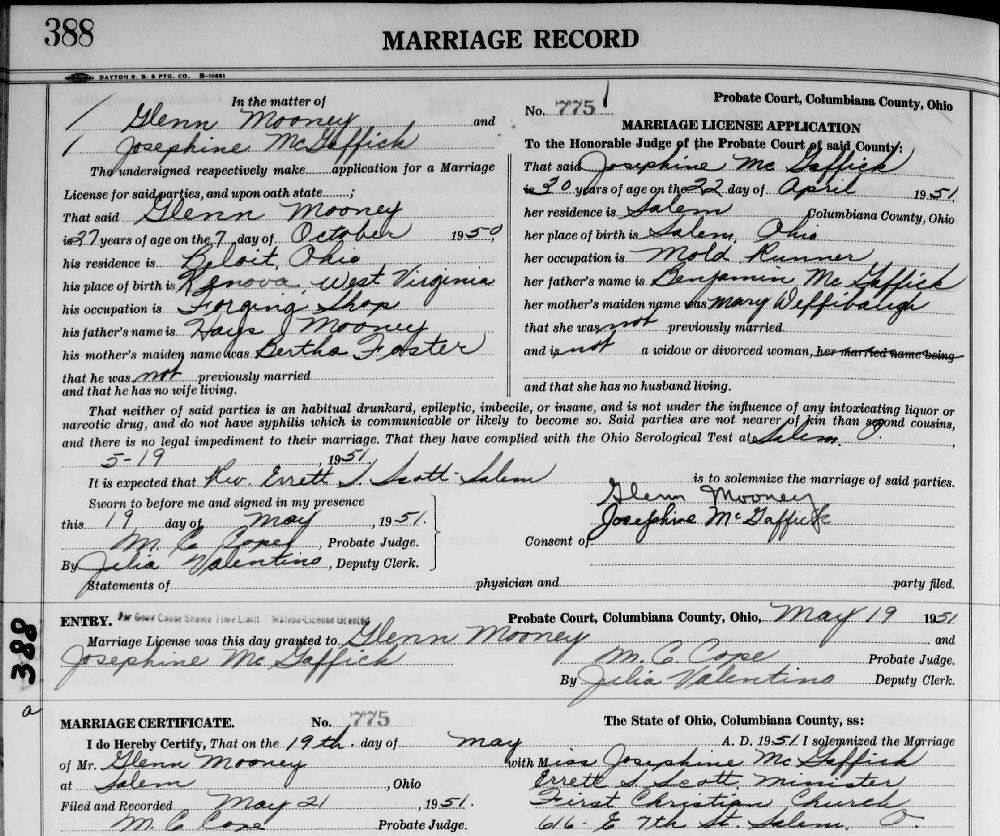 388
MARRIAGE RECORD
DAYTON B. B. & PTG. CO. B-10681
In the matter of
Glenn Mooney and
Josephine McGaffick
The undersigned respectively make application for a Marriage
License for said parties, and upon oath state ;
That said Glenn Mooney
is 27 years of age on the 7 day of October 1950
his residence is Beloit, Ohio
his place of birth is Kenova, West Virginia
his occupation is Forging Shop
his father's name is Hays J Mooney
his mother's maiden name was Bertha Foster
that he was not previously married
and that he has no wife living.
No. 775
Probate Court, Columbiana County, Ohio
MARRIAGE LICENSE APPLICATION
To the Honorable Judge of the Probate Court of said County:
That said Josephine McGaffick
is 30 years of age on the 22 day of April 1951
her residence is Salem Columbiana County, Ohio
her place of birth is Salem, Ohio
her occupation is Mold Runner
her father's name is Benjamin McGaffick
her mother's maiden name was Mary Deffibaugh
that she was not previously married
and is not a widow or divorced woman, her married name being
and that she has no husband living.
That neither of said parties is an habitual drunkard, epileptic, imbecile, or insane, and is not under the influence of any intoxicating liquor or
narcotic drug, and do not have syphilis which is communicable or likely to become so. Said parties are not nearer of kin than second cousins,
and there is no legal impediment to their marriage. That they have complied with the Ohio Serological Test at Salem, O.
5-19 , 1951
It is expected that Rev. Errett S. Scott - Salem is to solemnize the marriage of said parties.
Sworn to before me and signed in my presence
this 19 day of May , 1951.
M. C. Cope , Probate Judge.
By Julia Valentino , Deputy Clerk.
Glenn Mooney
Josephine McGaffick
Consent of
Statements of physician and party filed.
388
ENTRY. For Good Cause Shown Time Limit Waived-License Granted Probate Court, Columbiana County, Ohio, May 19 1951
Marriage License was this day granted to Glenn Mooney and
Josephine McGaffick M. C. Cope Probate Judge.
By Julia Valentino Deputy Clerk.
a
MARRIAGE CERTIFICATE. No. 775 The State of Ohio, Columbiana County, ss:
I do Hereby Certify, That on the 19th. day of May A. D. 1951 I solemnized the Marriage
of Mr. Glenn Mooney with Miss Josephine McGaffick
at Salem , Ohio Errett S. Scott, Minister
Filed and Recorded May 21 , 1951. First Christian Church
M. C. Cope Probate Judge. 616 - E 7th St. Salem, O